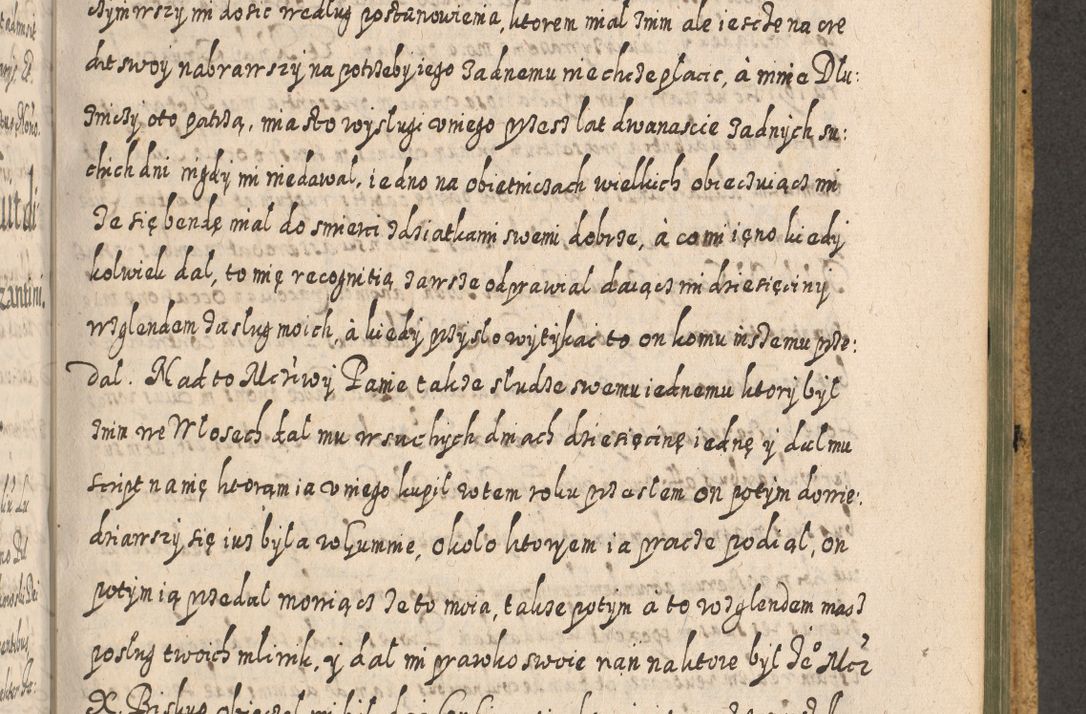 wszy mi dosic według postanowienia, ktorem miał znim ale iescze na cre
dit swoy nabrawszy na potrzeby iego zadnemu niechcze płacic, à mnie Dłu:
zniczy oto patrzą, miasto wysługi v niego przesz lat dwanascie zadnych su:
chich dni nigdy mi niedawał, iedno na obietniczach wielkich obieczuiącz mi
Ze się bendę miał do smierci zdziatkami swemi dobrze, à co mi ięno kiedy
kolwiek dał, to mię recognitią zawsze odprawiał daiącz mi dziesięciny
wzglendem zasług moich, à kiedy przyszło wytykac to on komu inszemu prze:
dał. Nad to Mczіwy Panie takze słudze swemu iednemu ktory był
znim we Włosech dał mu w suchych dniach dziesięcinę iednę y dał mu
script na nię ktorąm ia v niego kupił w tem roku przeszłem on potym dowie:
dziawszy się iusz była w Gumnie, około ktorÿem ia pracze podiął, on
potym ią przedał mowiącz ze to moia, takze potym a to wzglendem masz
posług twoich mlinik, y dał mi prawko swoie nan na ktore był Je° Mcz
X. Biskup obieczał mi